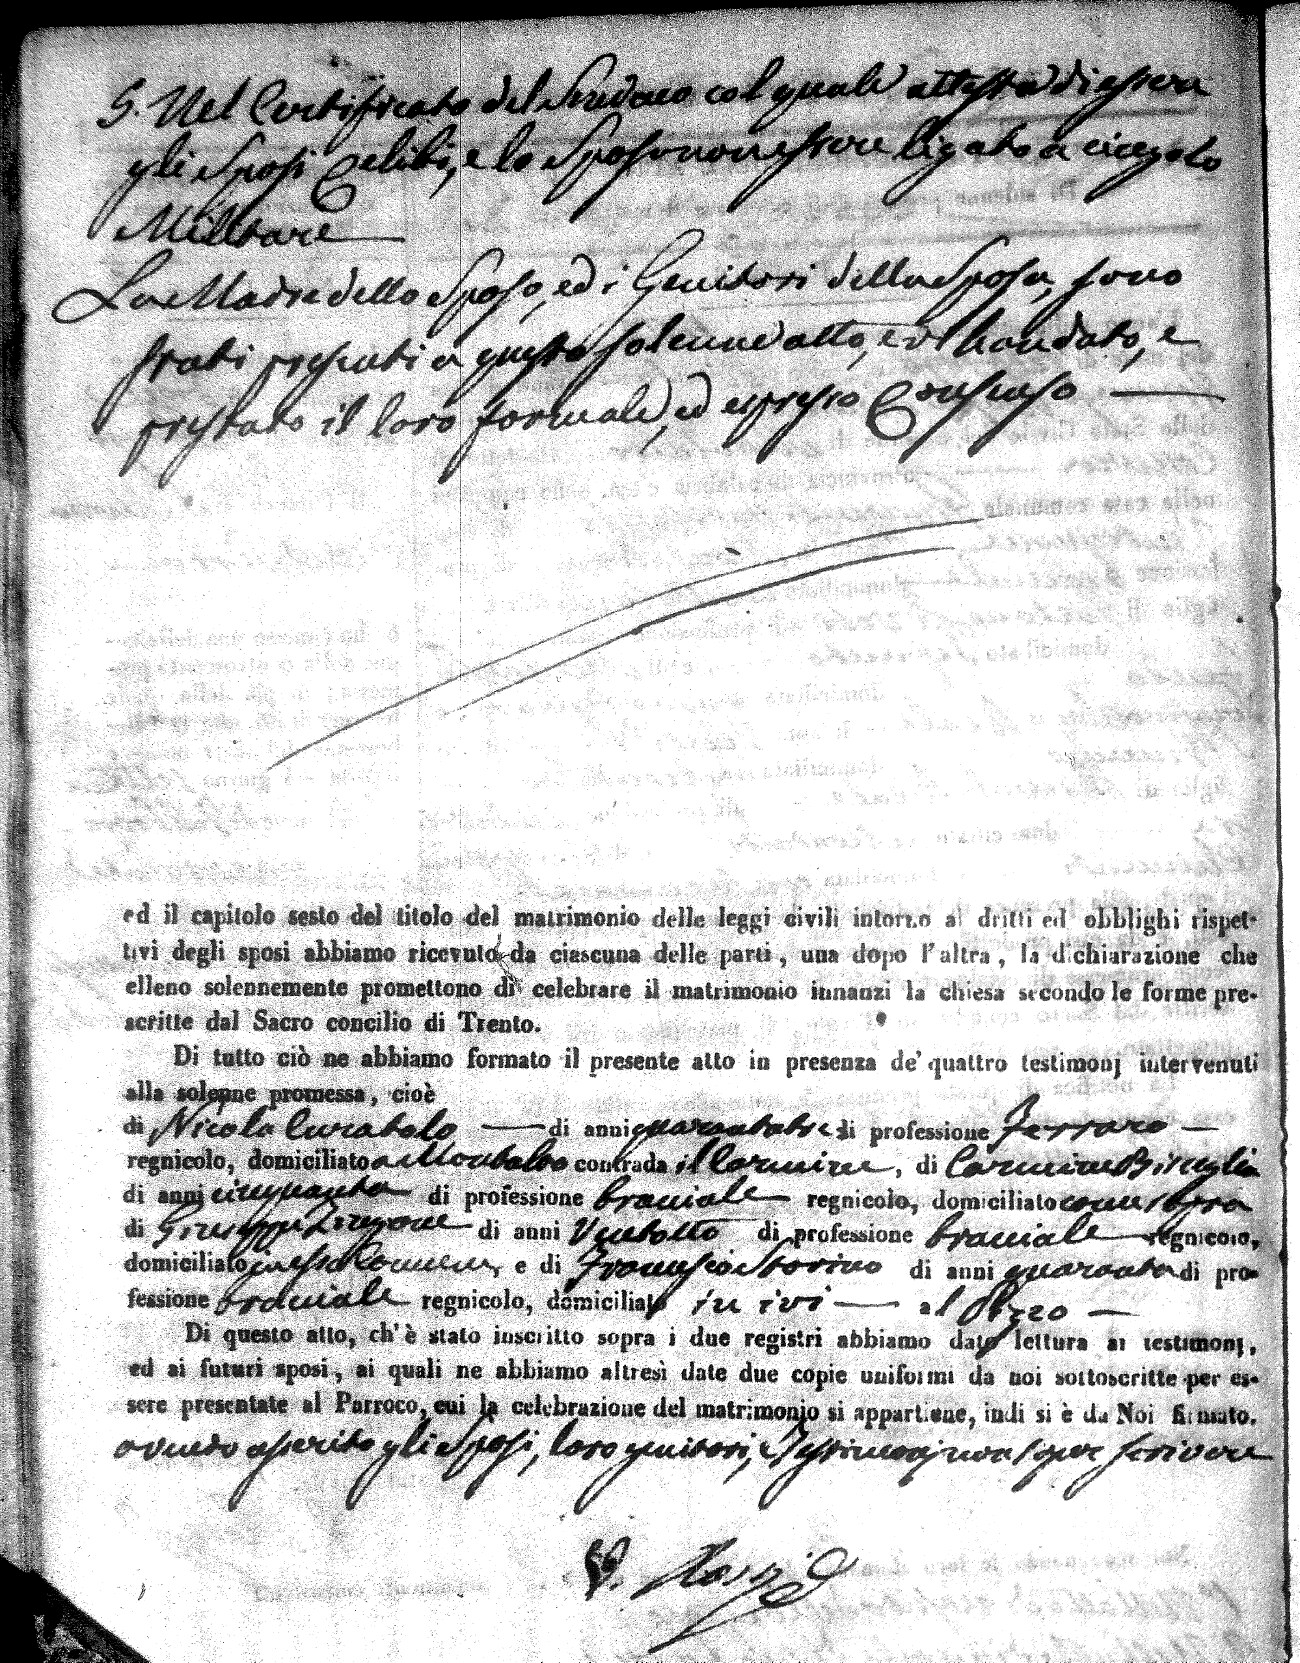 5. Nel Certificato del Sindaco col quale attesta di essere
gli Sposi Celibi, e lo Sposo non essere ligato a
Militare
La Madre dello Sposo, ed i Genitori della Sposa, sono
stati presenti a questo solenne atto, e vi han dato, e
prestato il loro formale, ed espresso Consenso
ed il capitolo sesto del titolo del matrimonio delle leggi civili intorno ai dritti ed obblighi rispet-
tivi degli sposi abbiamo ricevuto da ciascuna delle parti, una dopo l'altra, la dichiarazione che
elleno solennemente promettono di celebrare il matrimonio innanzi la chiesa secondo le forme pre-
scritte dal Sacro concilio di Trento.
Di tutto ciò ne abbiamo formato il presente atto in presenza de' quattro testimonj intervenuti
alla solenne promessa, cioè
di Nicola Curatolo di anni quarantatre di professione Ferraro
regnicolo, domiciliato a Montalto contrada il Carmine, di Carmine Bisuglia
di anni cinquanta di professione braciale regnicolo, domiciliato come sopra
di Giuseppe di anni Ventotto di professione braciale regnicolo,
domiciliato in essa Comune, e di Francesco Storino di anni quaranta di pro-
fessione braciale regnicolo, domiciliato in ivi al Pizzo
Di questo atto, ch'è stato inscritto sopra i due registri abbiamo dato lettura ai testimonj,
ed ai futuri sposi, ai quali ne abbiamo altresì date due copie uniformi da noi sottoscritte per es-
sere presentate al Parroco, cui la celebrazione del matrimonio si appartiene, indi si è da Noi firmato.
avendo asserito gli Sposi, loro genitori, e Testimonj non saper scrivere